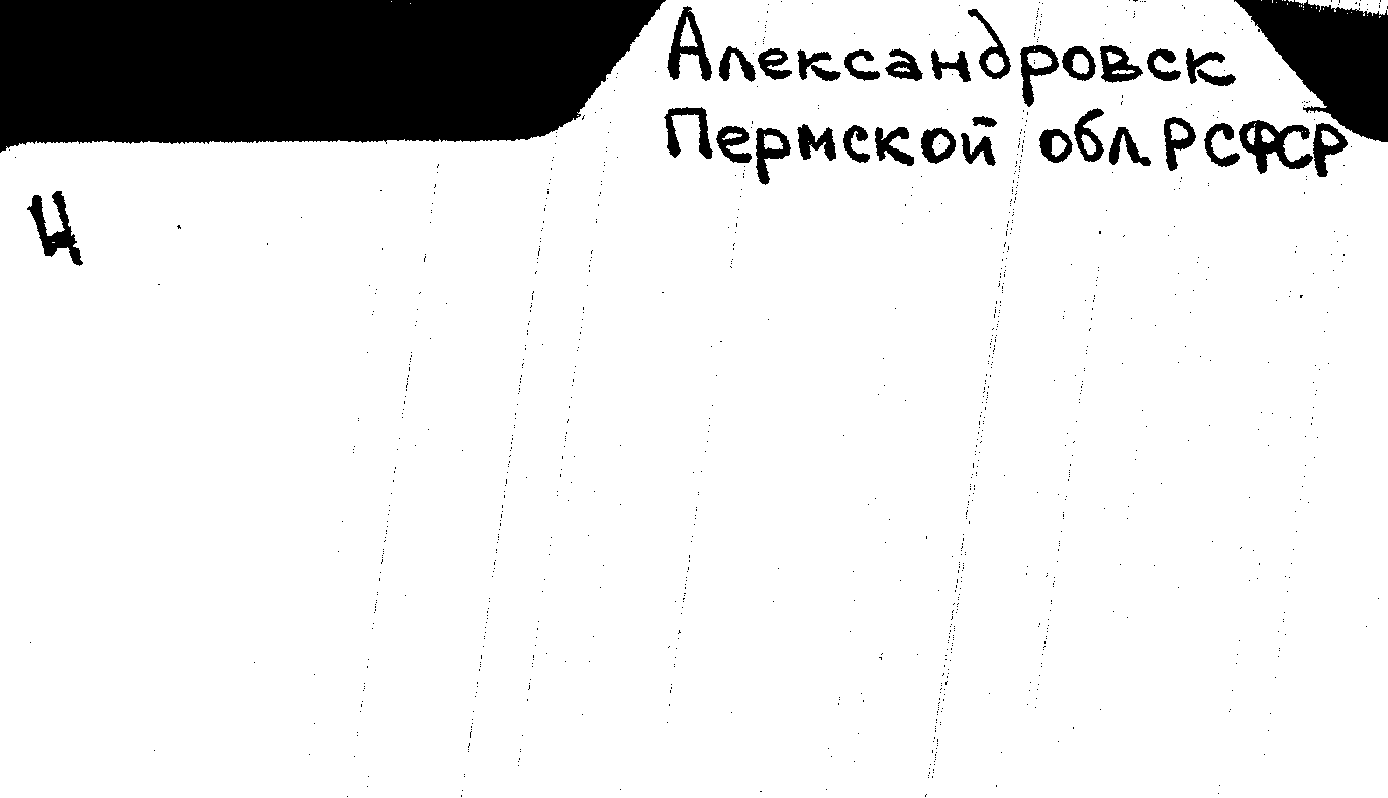 Александровск
Пермской обл. РСФСР